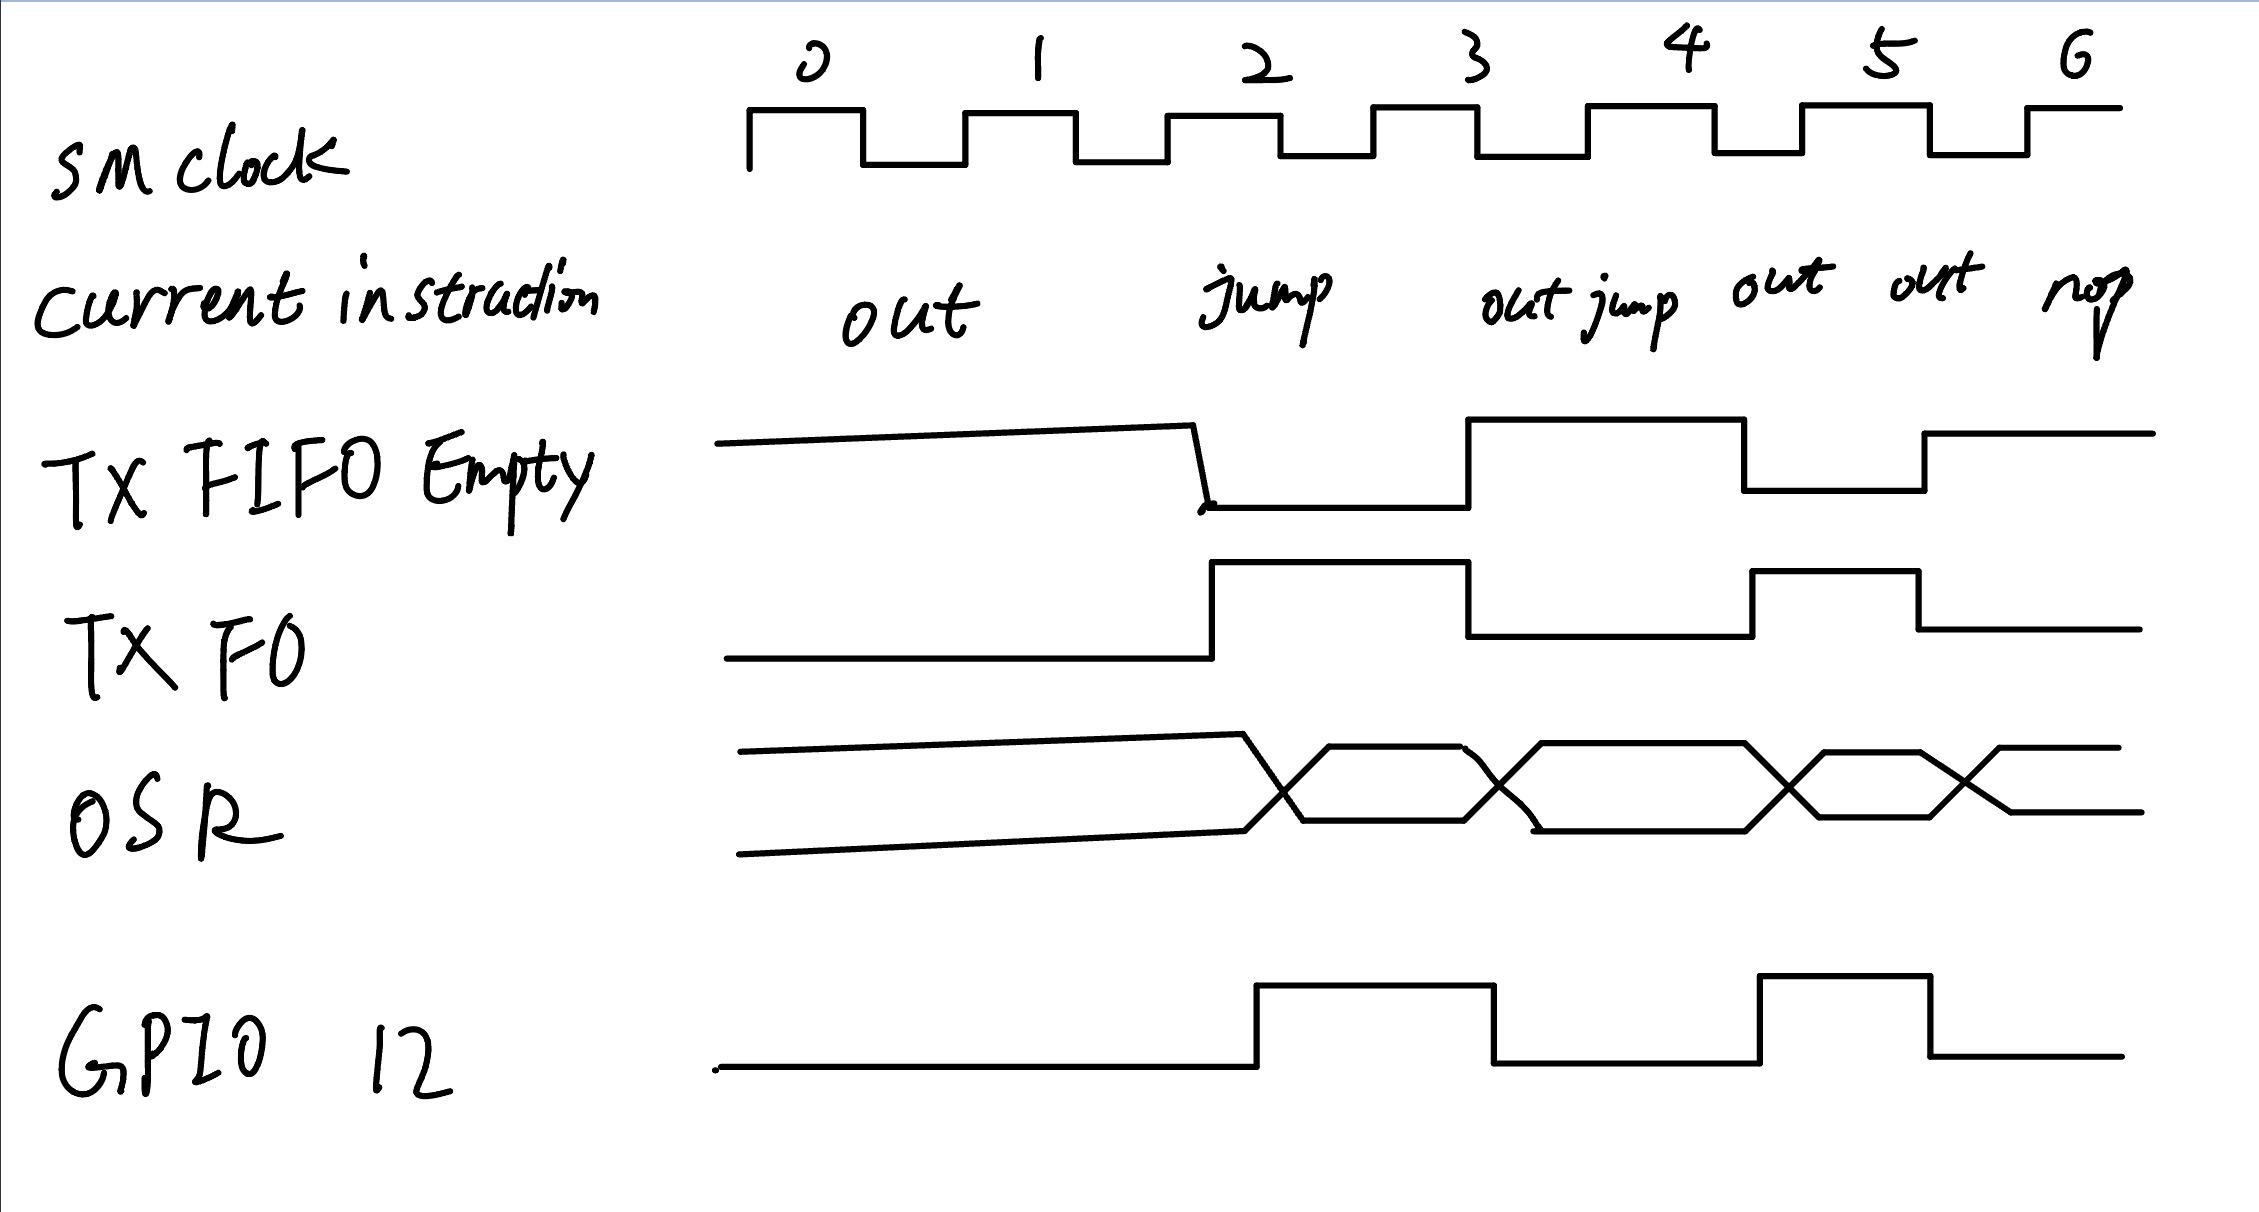 0 1 2 3 4 5 6
SM clock
current instraction out jump out jump out out nop
TX FIFO Empty
TX FO
OSR
GPIO 12